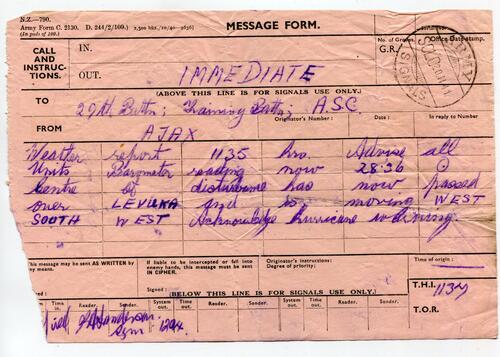 N.Z.—790.
Army Form C. 2130. D. 244/2/109.)
(In pads of 100.)
MESSAGE FORM.
Office Date Stamp.
No. of Groups.
G.R.
CALL AND INSTRUCTIONS.
IN.
OUT. IMMEDIATE
(ABOVE THIS LINE IS FOR SIGNALS USE ONLY.)
TO 29th Battn; Training Battn; ASC.
Originator's Number: Date: In reply to Number
FROM AJAX
Weather report 1135 hrs. Advise all
Units Barometer reading now 28.36
Centre of disturbance has now passed
over LEVUKA and is moving WEST
SOUTH WEST Acknowledge hurricane warning.
This message may be sent AS WRITTEN by any means.
If liable to be intercepted or fall into enemy hands, this message must be sent IN CIPHER.
Originator's instructions:
Degree of priority:
Time of origin:
Signed:
(BELOW THIS LINE IS FOR SIGNALS USE ONLY.)
T.H.I. 1137
Time in Reader. Sender. System out. Time out. Reader. Sender. System out. Time out. Reader. Sender.
T.O.R.